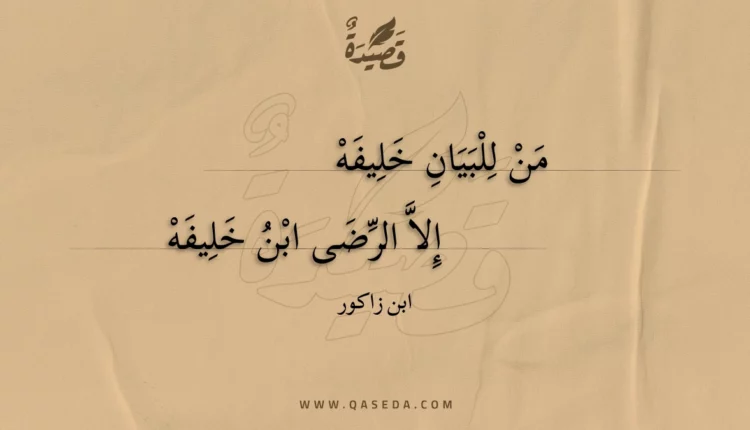 قَصِيْدَةٌ
مَنْ لِلْبَيَانِ خَلِيفَهْ
إِلاَّ الرِّضَى ابْنُ خَلِيفَهْ
ابن زاكور
WWW.QASEDA.COM